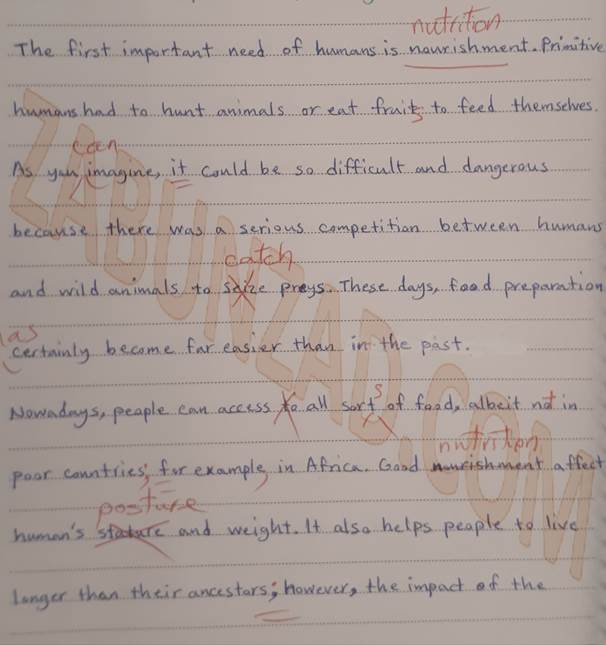 nutrition
The first important need of humans is nourishment. Primitive
humans had to hunt animals or eat fruits to feed themselves.
can
As you imagine, it could be so difficult and dangerous
because there was a serious competition between humans
catch
and wild animals to seize preys. These days, food preparation
has
certainly become far easier than in the past.
s
Nowadays, people can access to all sort of food, albeit not in
nutrition
poor countries; for example, in Africa. Good nourishment affect
posture
human's stature and weight. It also helps people to live
longer than their ancestors; however, the impact of the
ZABUNZAD.COM